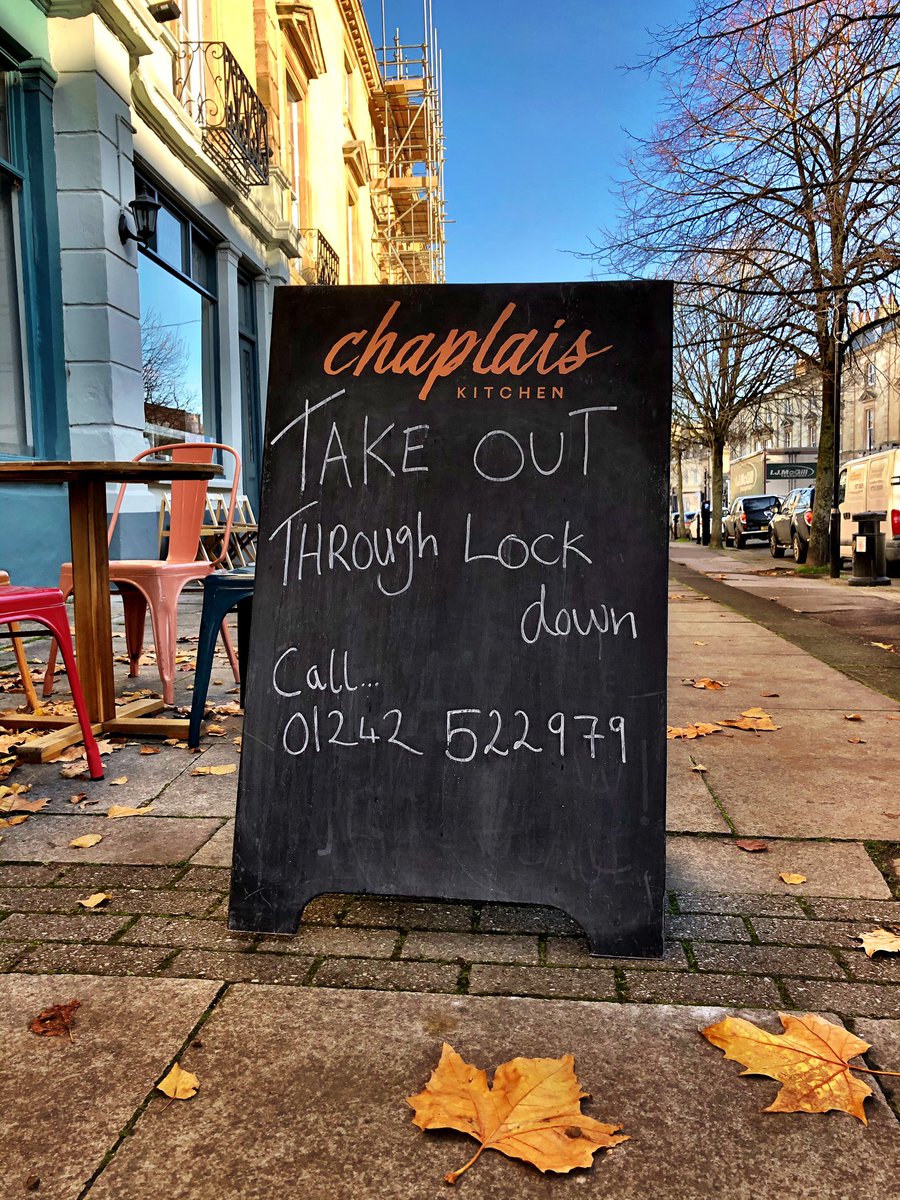 chaplais
KITCHEN
TAKE OUT
THROUgh Lock
down
Call...
01242 522979
L.J.McGill